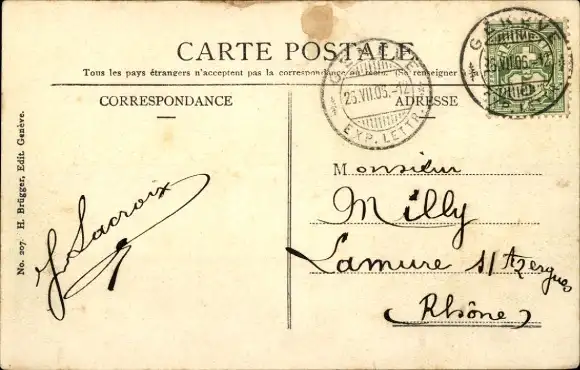 CARTE POSTALE
Tous les pays étrangers n'acceptent pas la correspondance au recto. (Se renseigner à la
CORRESPONDANCE
ADRESSE
GENÈVE
25.VII.05.-12
EXP. LETTR.
GENÈVE
25.VII.05.-12
EXP. LETTR.
No. 207. H. Brügger, Edit. Genève.
J. Lacroix
Monsieur
Milly
Lamure s/ Azergues
Rhône